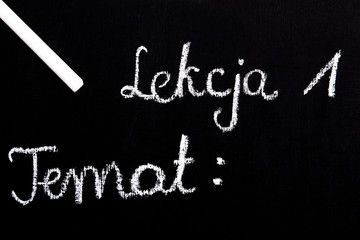 Lekcja 1
Temat: